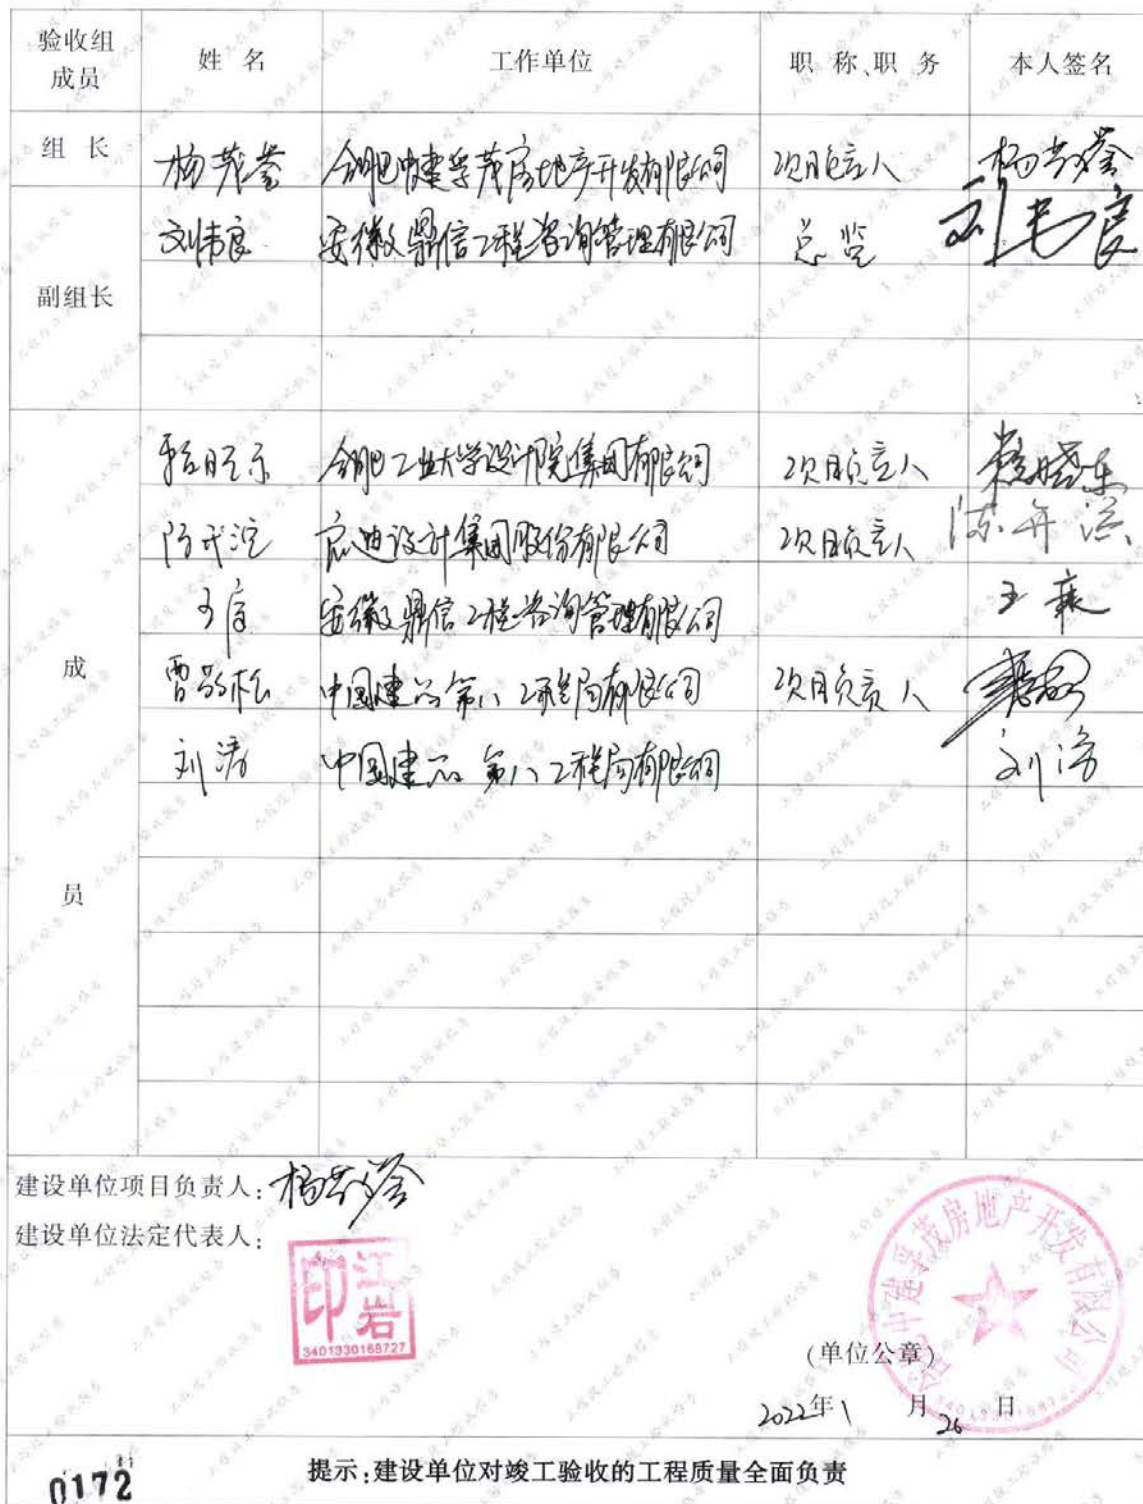 验收组成员 姓 名 工作单位 职 称、职 务 本人签名
组 长 杨茂荃 合肥中建孚茂房地产开发有限公司 项目负责人 杨茂荃
刘韦良 安徽鼎信工程咨询管理有限公司 总监 刘韦良
副组长
合肥工业大学设计院集团有限公司 项目负责人
启迪设计集团股份有限公司 项目负责人
王 安徽鼎信工程咨询管理有限公司 王
成 曹 松 中国建筑第八工程局有限公司 项目负责人
刘涛 中国建筑第八工程局有限公司 刘涛
员
建设单位项目负责人: 杨茂荃
建设单位法定代表人:
江岩印
3401330168727
合肥中建孚茂房地产开发有限公司
(单位公章)
2022年1月26日
0172 提示:建设单位对竣工验收的工程质量全面负责